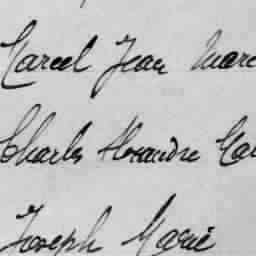 Marcel Jean Marc
Charles Alexandre
Joseph Marie